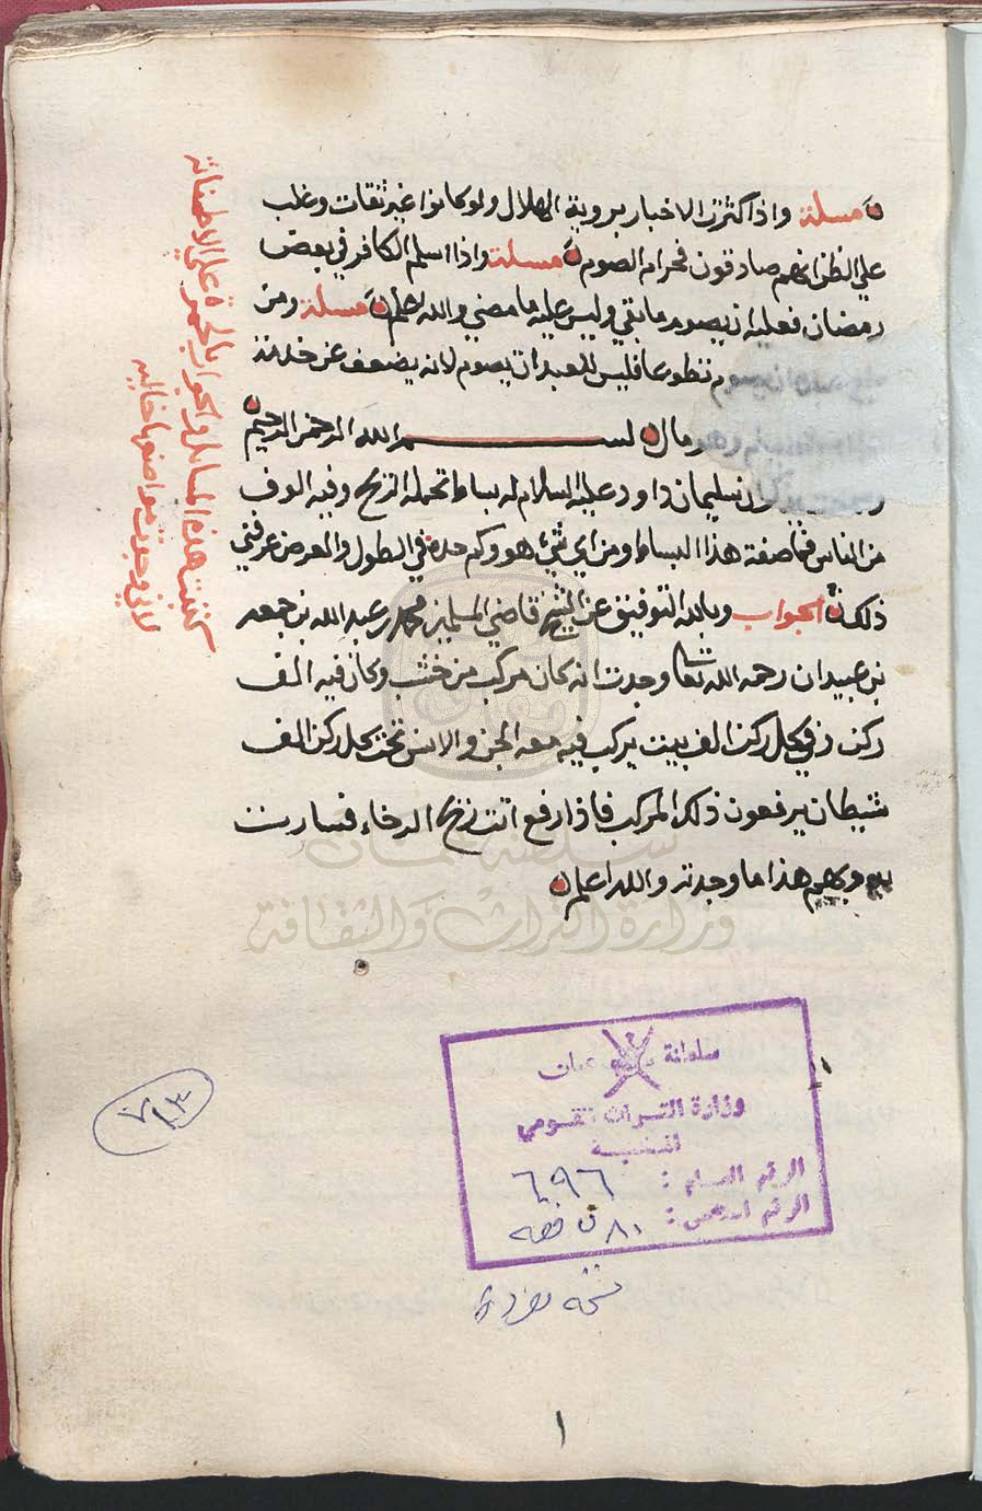 مسلة واذا كثرت الاخبار بروية الهلال ولو كانوا غير ثقات وغلب
علي الظن انهم صادقون فحرام الصوم مسلة واذا اسلم الكافر في بعض
رمضان فعليه ان يصوم ما بقي وليس عليه ما مضي والله اعلم مسلة ومن
تطوعا فليس للعبد ان يصوم لانه يضعف عن خدمة
ومال بسم الله الرحمن الرحيم
ان سليمان داود عليه السلام له بساط تحمله الريح وفيه الوف
من الناس فما صفة هذا البساط ومن اي شيء هو وكم حده في الطول والعرض عرفني
ذلك الجواب وبالله التوفيق عن الشيخ قاضي المسلمين محمد بن عبدالله بن جمعه
بن عبيدان رحمه الله تعالى وجدت انه كان مركب من خشب وكان فيه الف
ركن وفي كل ركن الف بيت يركب فيه معه الجن والانس تحت كل ركن الف
شيطان يرفعون ذلك المركب فاذا رفع اتت ريح الرخاء فسارت
به وبهم هذا ما وجدته والله اعلم
كتبت هذه المسايل والجواب بالحمرة علي الاطمئنانه
لاني وجدت مواضعها خاليه
سلطنة عمان
وزارة التراث والثقافة
سلطنة عمان
وزارة التراث القومي
الثقافة
الرقم العام : ٦٠٩٦
الرقم الخاص : ٨٠ ف فقه
٧١٣
١